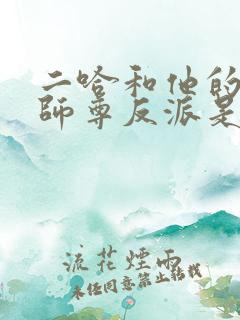 二哈和他的
師尊反派是
流花煙雨
未經同意禁止轉載